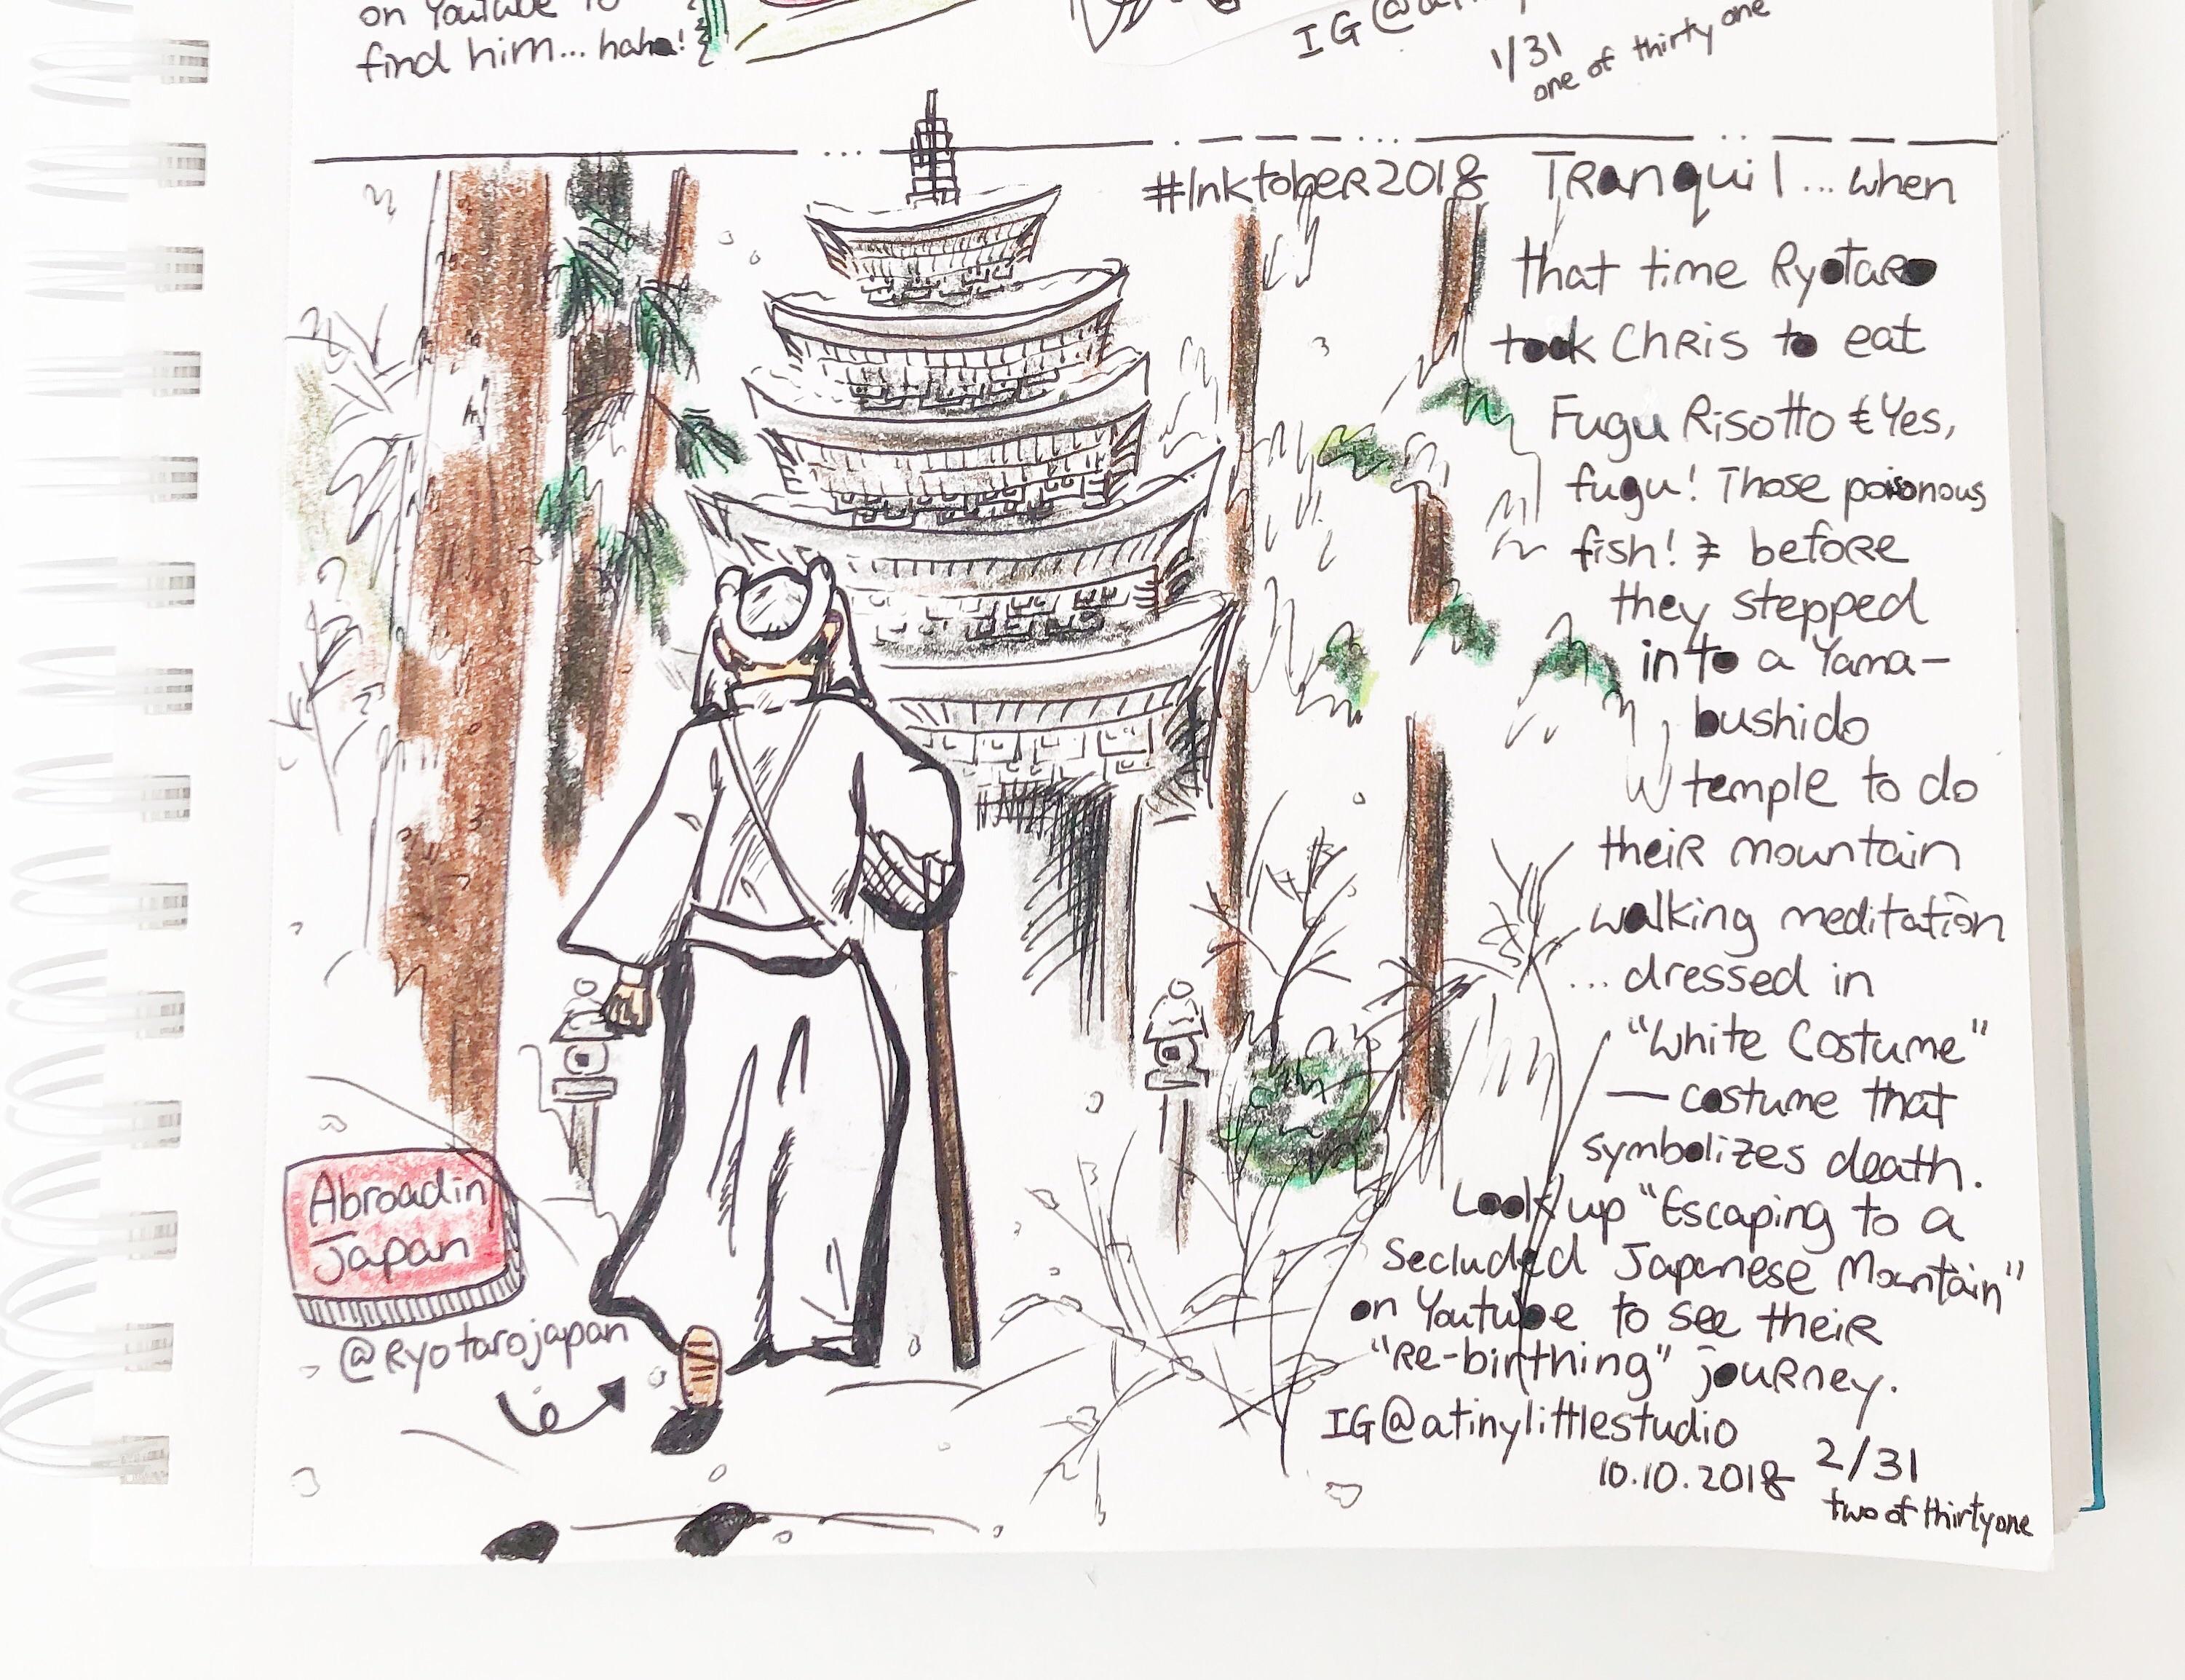 on Youtube to
find him... haha!
IG@atiny
1/31
one of thirty one
#Inktober2018 Tranquil... when
that time Ryotaro
took Chris to eat
Fugu Risotto & Yes,
fugu! Those poisonous
fish! & before
they stepped
into a Yama-
bushido
temple to do
their mountain
walking meditation
... dressed in
"White Costume"
— costume that
symbolizes death.
Look up "Escaping to a
Secluded Japanese Mountain"
on Youtube to see their
"Re-birthing" journey.
IG@atinylittlestudio
10.10.2018 2/31
two of thirty one
Abroad in
Japan
@Ryotarojapan